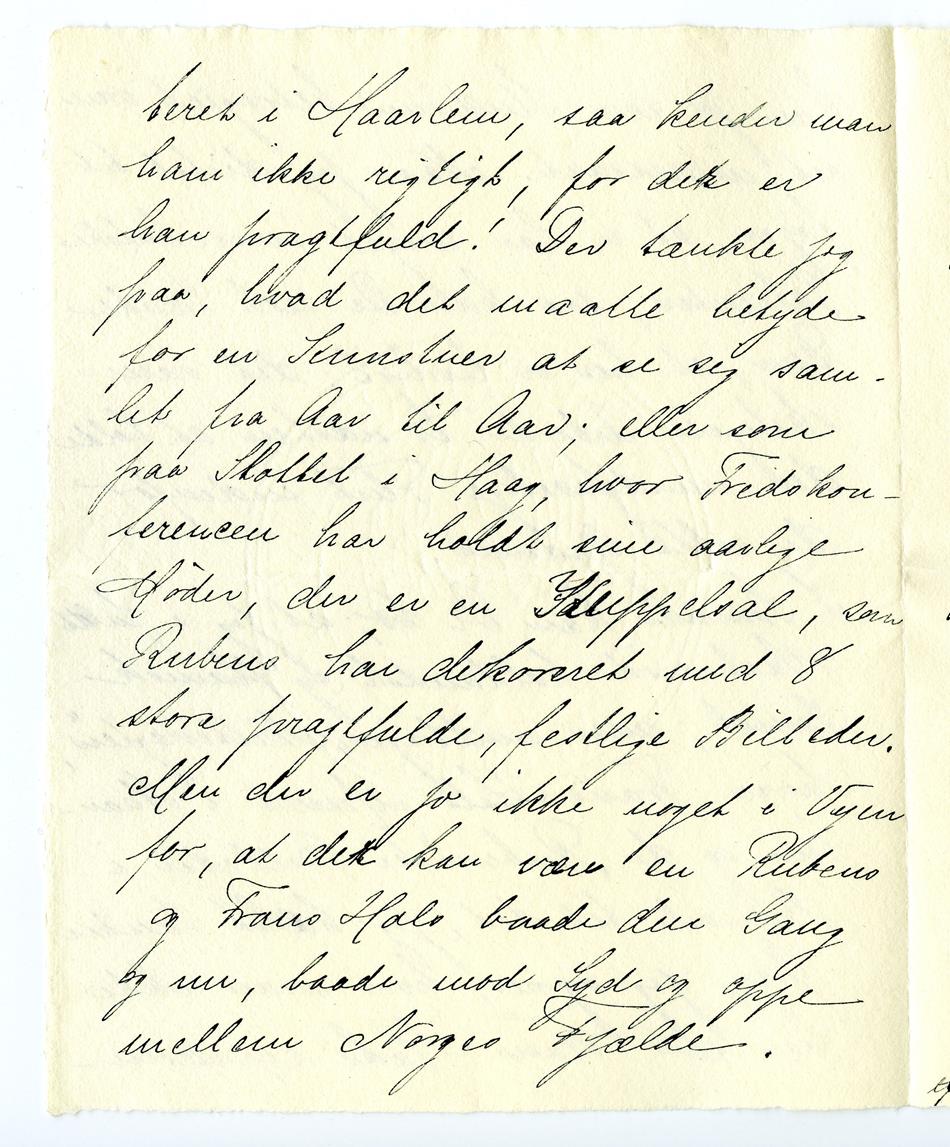 teret i Haarlem, saa kender man
ham ikke rigtigt, for det er
han pragtfuld! Der tænkte jeg
paa, hvad det maatte betyde
for en Kunstner at se sig sam-
let fra Aar til Aar; eller som
paa Slottet i Haag, hvor Fredskon-
ferencen har holdt sine aarlige
Møder, der er en Kuppelsal, som
Rubens har dekoreret med 8
store pragtfulde, festlige Billeder.
Men der er jo ikke noget i Vejen
for, at det kan være en Rubens
og Frans Hals baade den Gang
og nu, baade mod Syd og oppe
mellem Norges Fjælde.